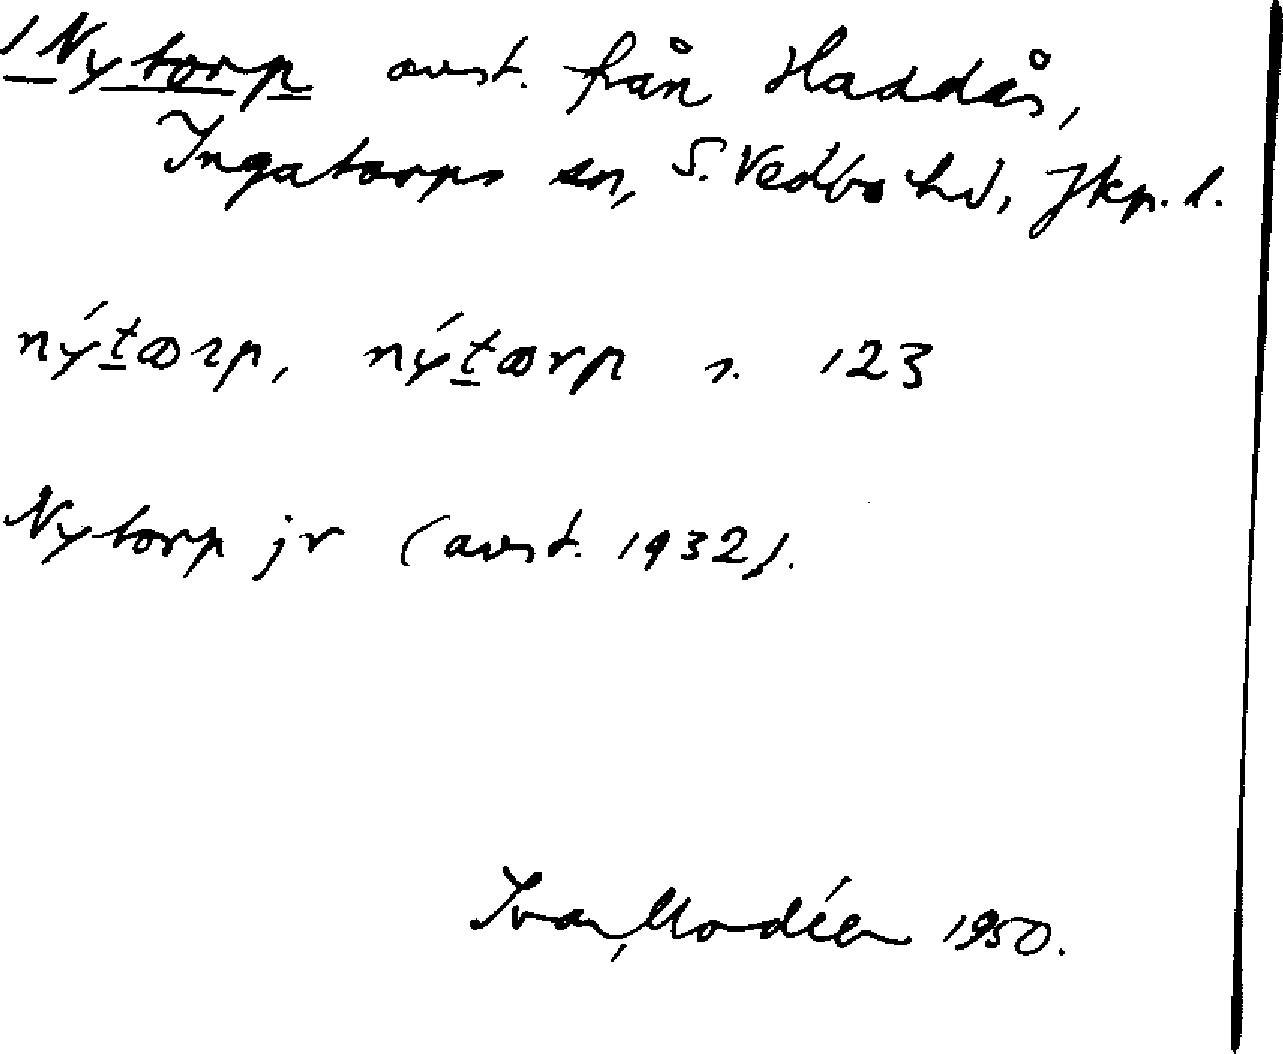 1 Nytorp avst. från Haddås,
Ingatorps sn, S. Vedbo hd, Jkp. l.
nýtærp, nýtærp s. 123
Nytorp jr (avst. 1932).
Ivar Modéer 1950.